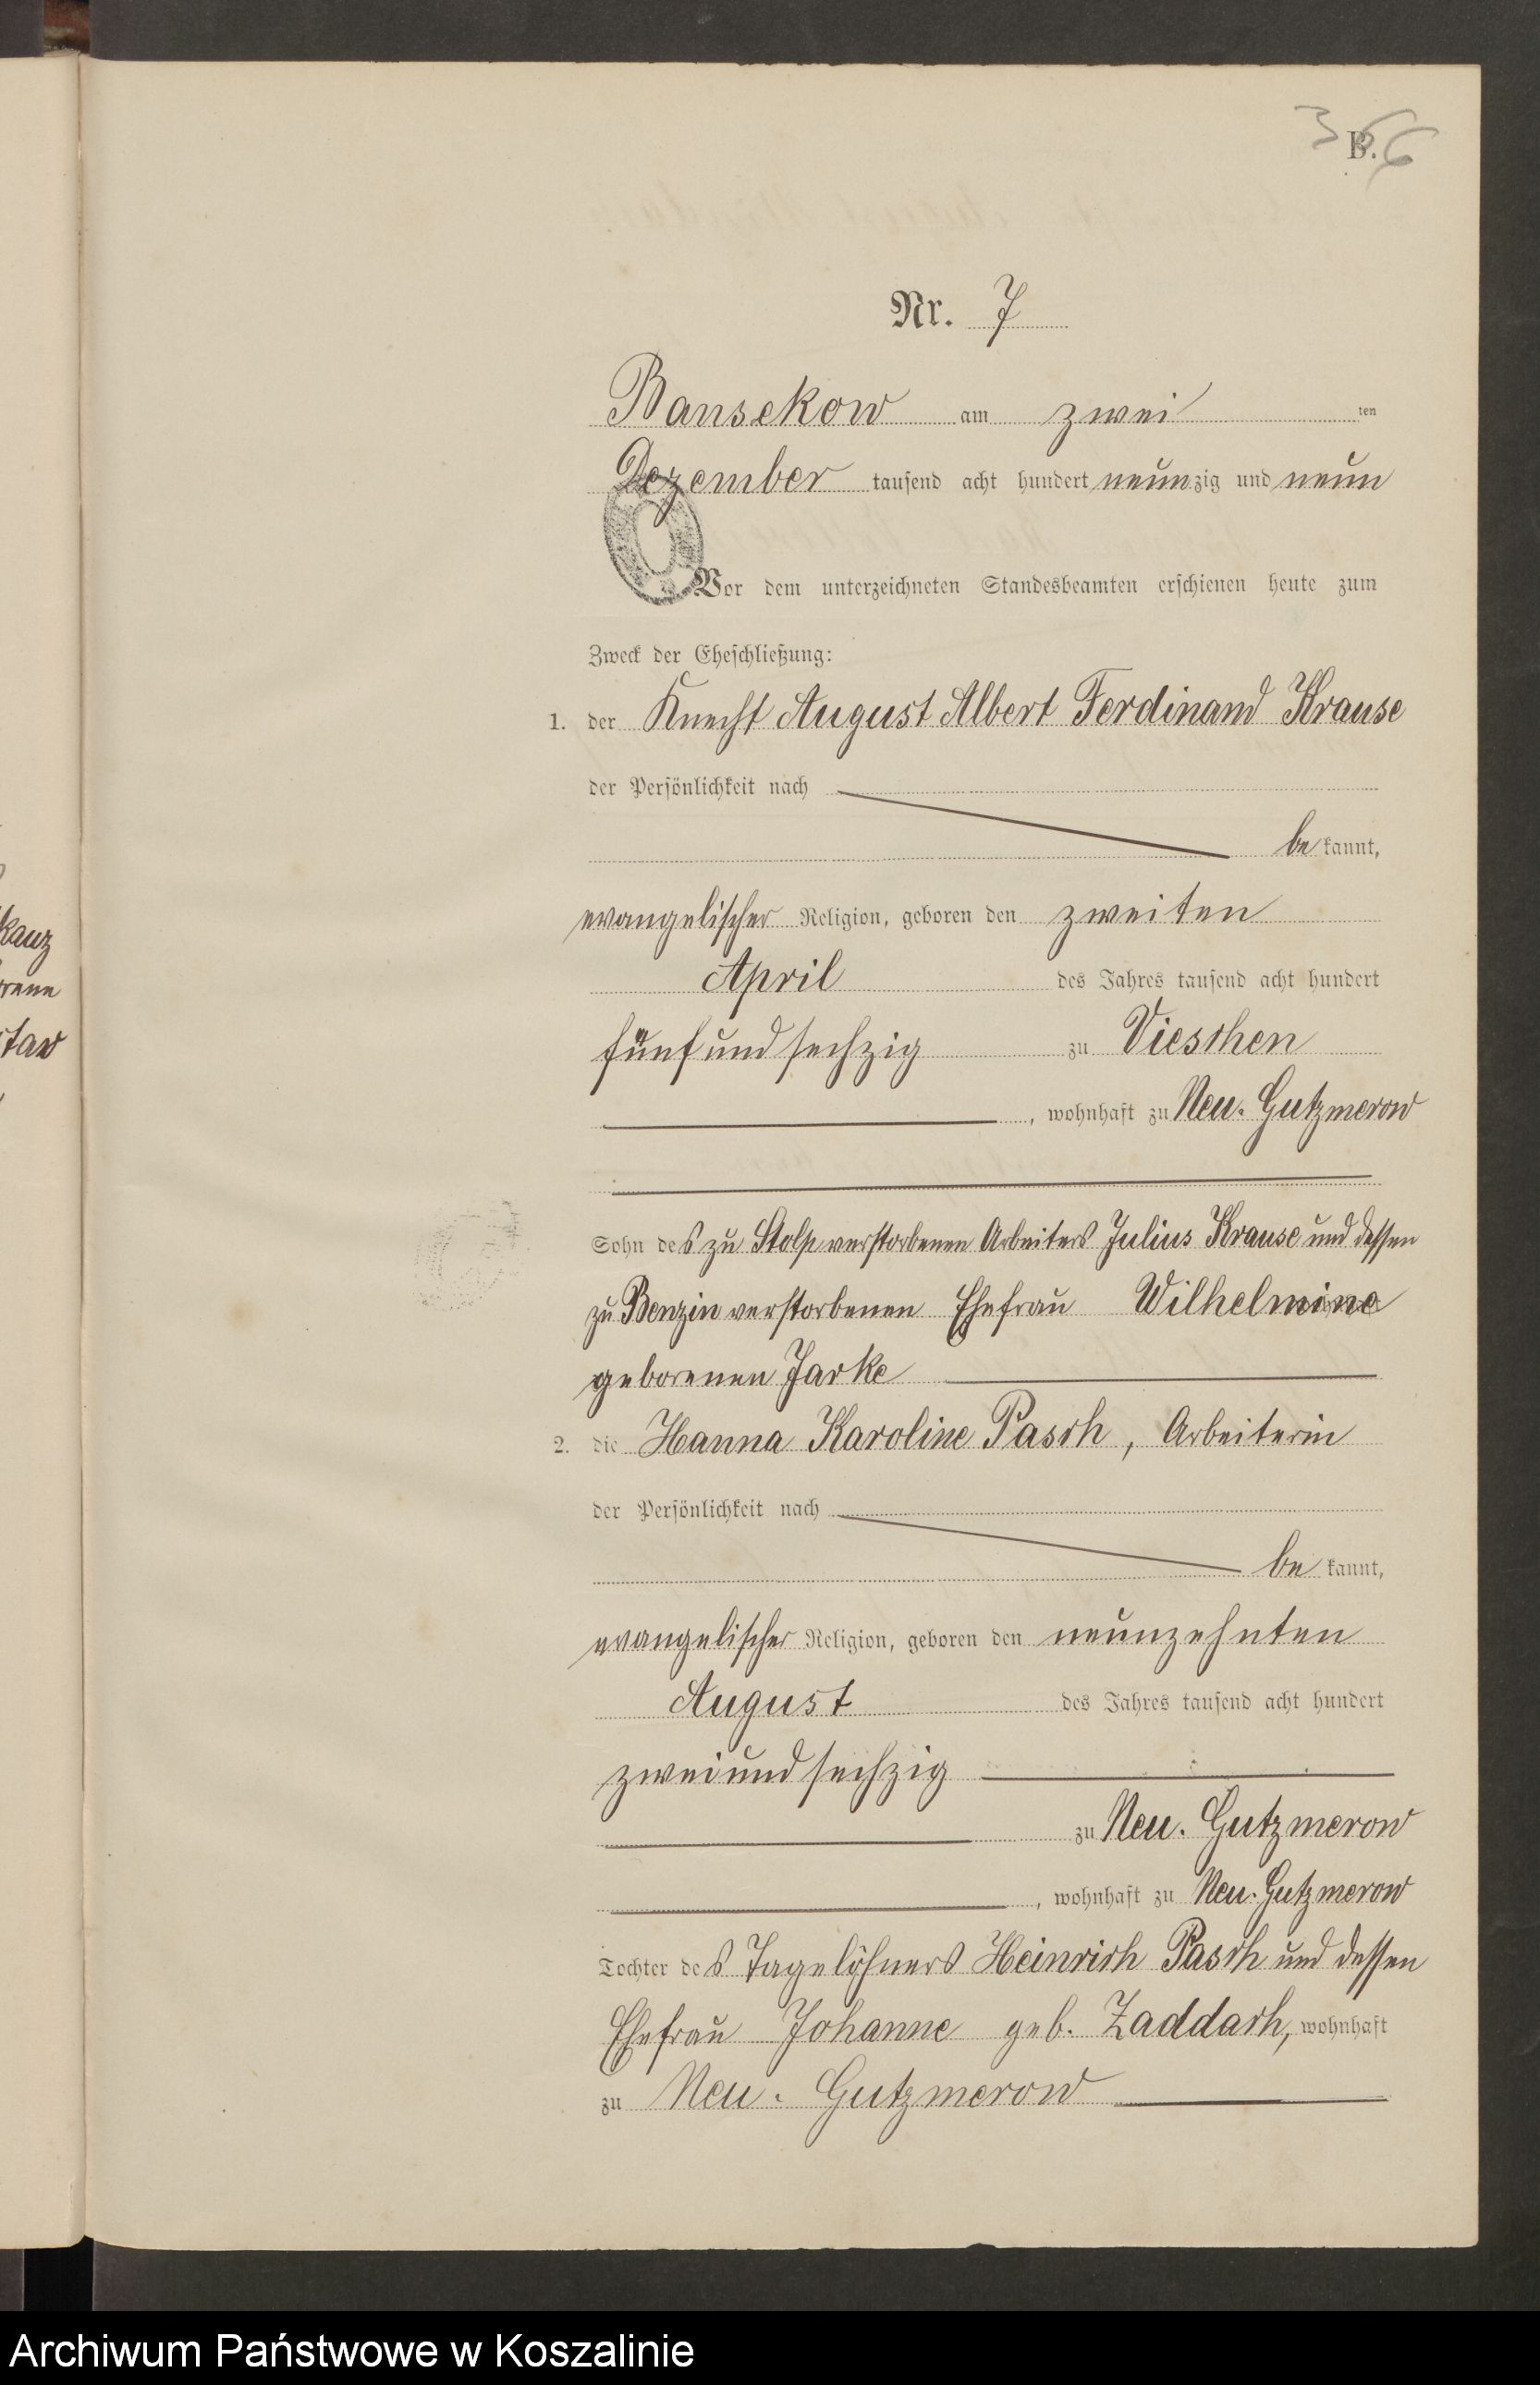 B.
366
Nr. 7
Bansekow am zwei ten
Dezember tausend acht hundert neunzig und neun
Vor dem unterzeichneten Standesbeamten erschienen heute zum
Zweck der Eheschließung:
1. der Knecht August Albert Ferdinand Krause
der Persönlichkeit nach
be kannt,
evangelischer Religion, geboren den zweiten
April des Jahres tausend acht hundert
fünf und sechzig zu Vieschen
, wohnhaft zu Neu-Gutzmerow
Sohn des zu Stolp verstorbenen Arbeiters Julius Krause und dessen
zu Benzin verstorbenen Ehefrau Wilhelmine
geborenen Jarke
2. die Hanna Karoline Pasch, Arbeiterin
der Persönlichkeit nach
be kannt,
evangelischer Religion, geboren den neunzehnten
August des Jahres tausend acht hundert
zwei und sechzig
zu Neu-Gutzmerow
, wohnhaft zu Neu-Gutzmerow
Tochter des Tagelöhners Heinrich Pasch und dessen
Ehefrau Johanne geb. Zaddach, wohnhaft
zu Neu-Gutzmerow
Archiwum Państwowe w Koszalinie